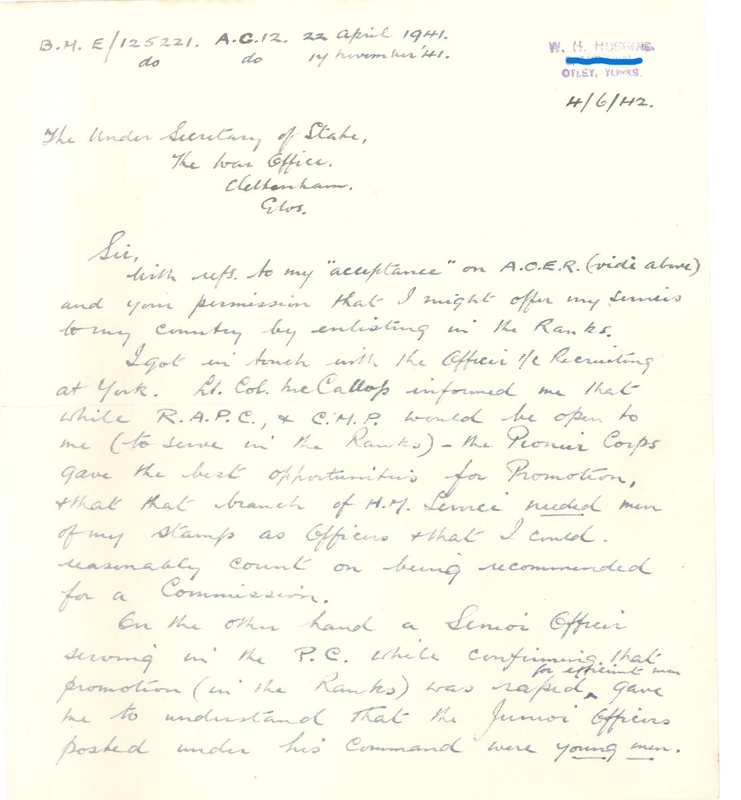 B.M. E/125221. A.G.12. 22 April 1941.
do do 14 November '41.
W. H.
OTLEY, YORKS.
4/6/42.
The Under Secretary of State,
The War Office.
Cheltenham.
Glos.
Sir,
With refs. to my "acceptance" on A.O.E.R. (vide above)
and your permission that I might offer my services
to my country by enlisting in the Ranks.
I got in touch with the Officer i/c Recruiting
at York. Lt. Col. McCallop informed me that
while R.A.P.C., & C.M.P. would be open to
me (to serve in the Ranks) - the Pioneer Corps
gave the best opportunities for Promotion,
& that that branch of H.M. Service needed men
of my stamp as Officers & that I could.
reasonably count on being recommended
for a Commission.
On the other hand a Senior Officer
serving in the P.C. while confirming that
promotion (in the Ranks) was rapid ^ for efficient men gave
me to understand that the Junior Officers
posted under his command were young men.